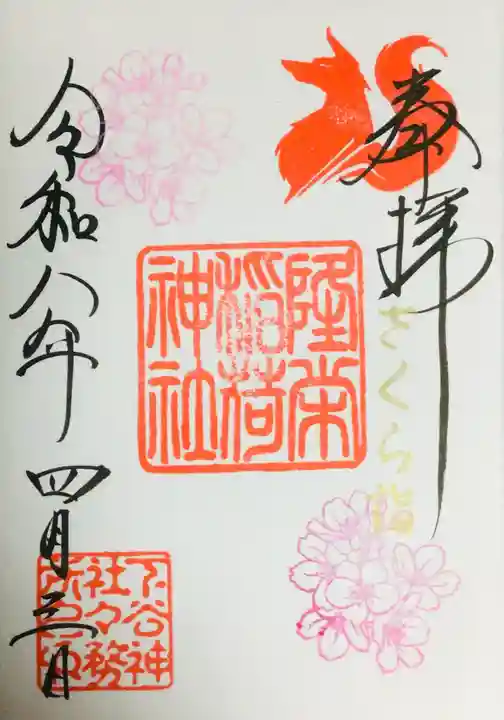 奉拝
さくら詣
隆栄
稲荷
神社
令和八年四月三日
下谷神
社々務
所之印